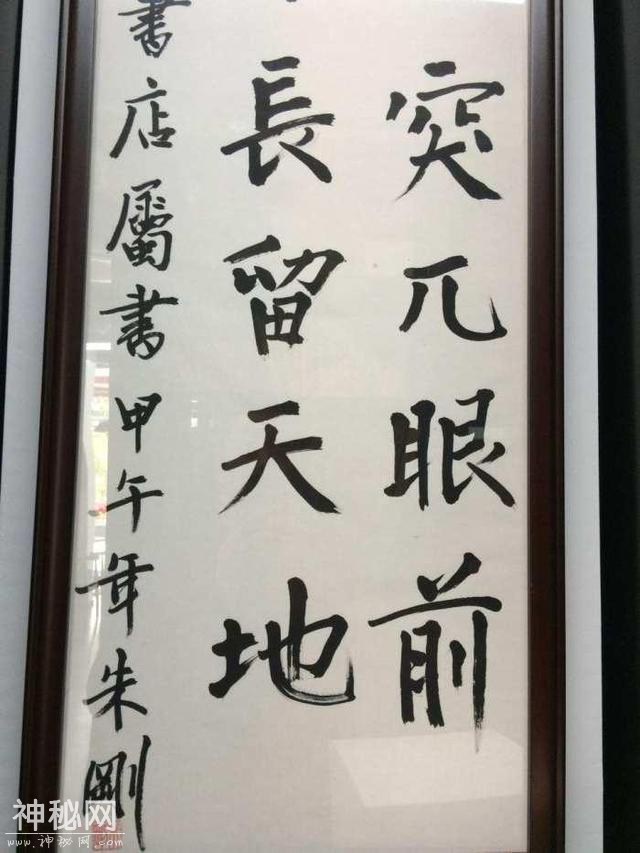 突兀眼前
長留天地
書店屬書甲午年朱剛
神秘网
www.神秘网.com